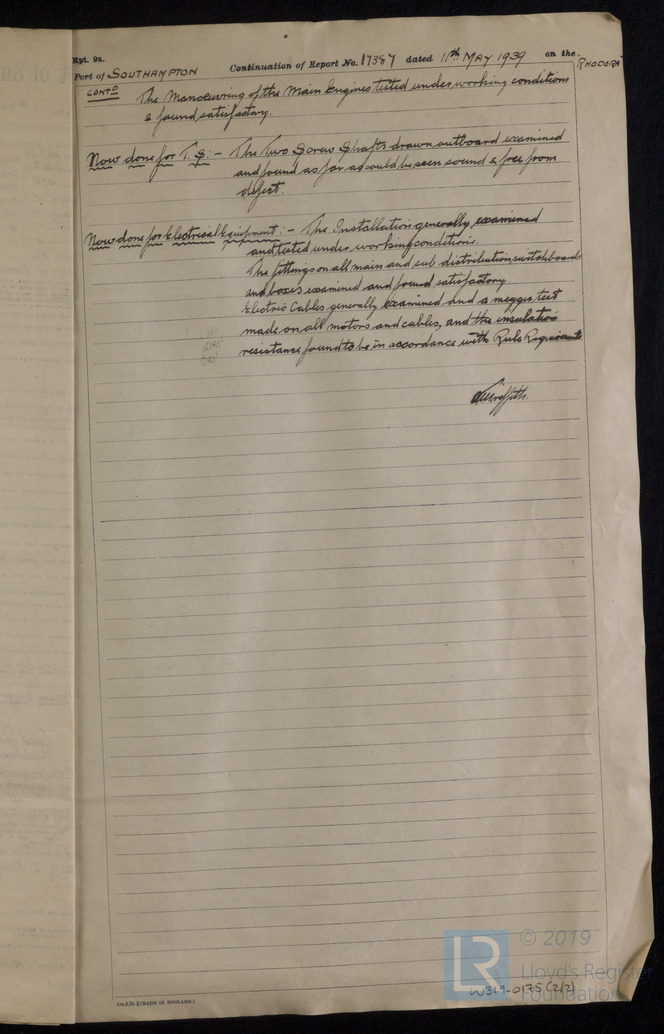 Rpt. 9a.
Port of SOUTHAMPTON Continuation of Report No. 17387 dated 11th MAY 1939 on the RHODORA
CONTD
The Manoeuvring of the Main Engines tested under working conditions
& found satisfactory.
Now done for T.S:- The Two Screw Shafts drawn outboard examined
and found as far as could be seen sound & free from
defect.
Now done for Electrical Equipment:- The Installation generally examined
and tested under working conditions.
The fittings on all main and sub distribution switchboards
and boxes examined and found satisfactory
Electric Cables generally examined and a megger test
made on all motors and cables, and the insulation
resistance found to be in accordance with Rule Requirements
Griffith.
© 2019
LR
Lloyd's Register
Foundation
W319-0175(2/2)
(MADE IN ENGLAND.)